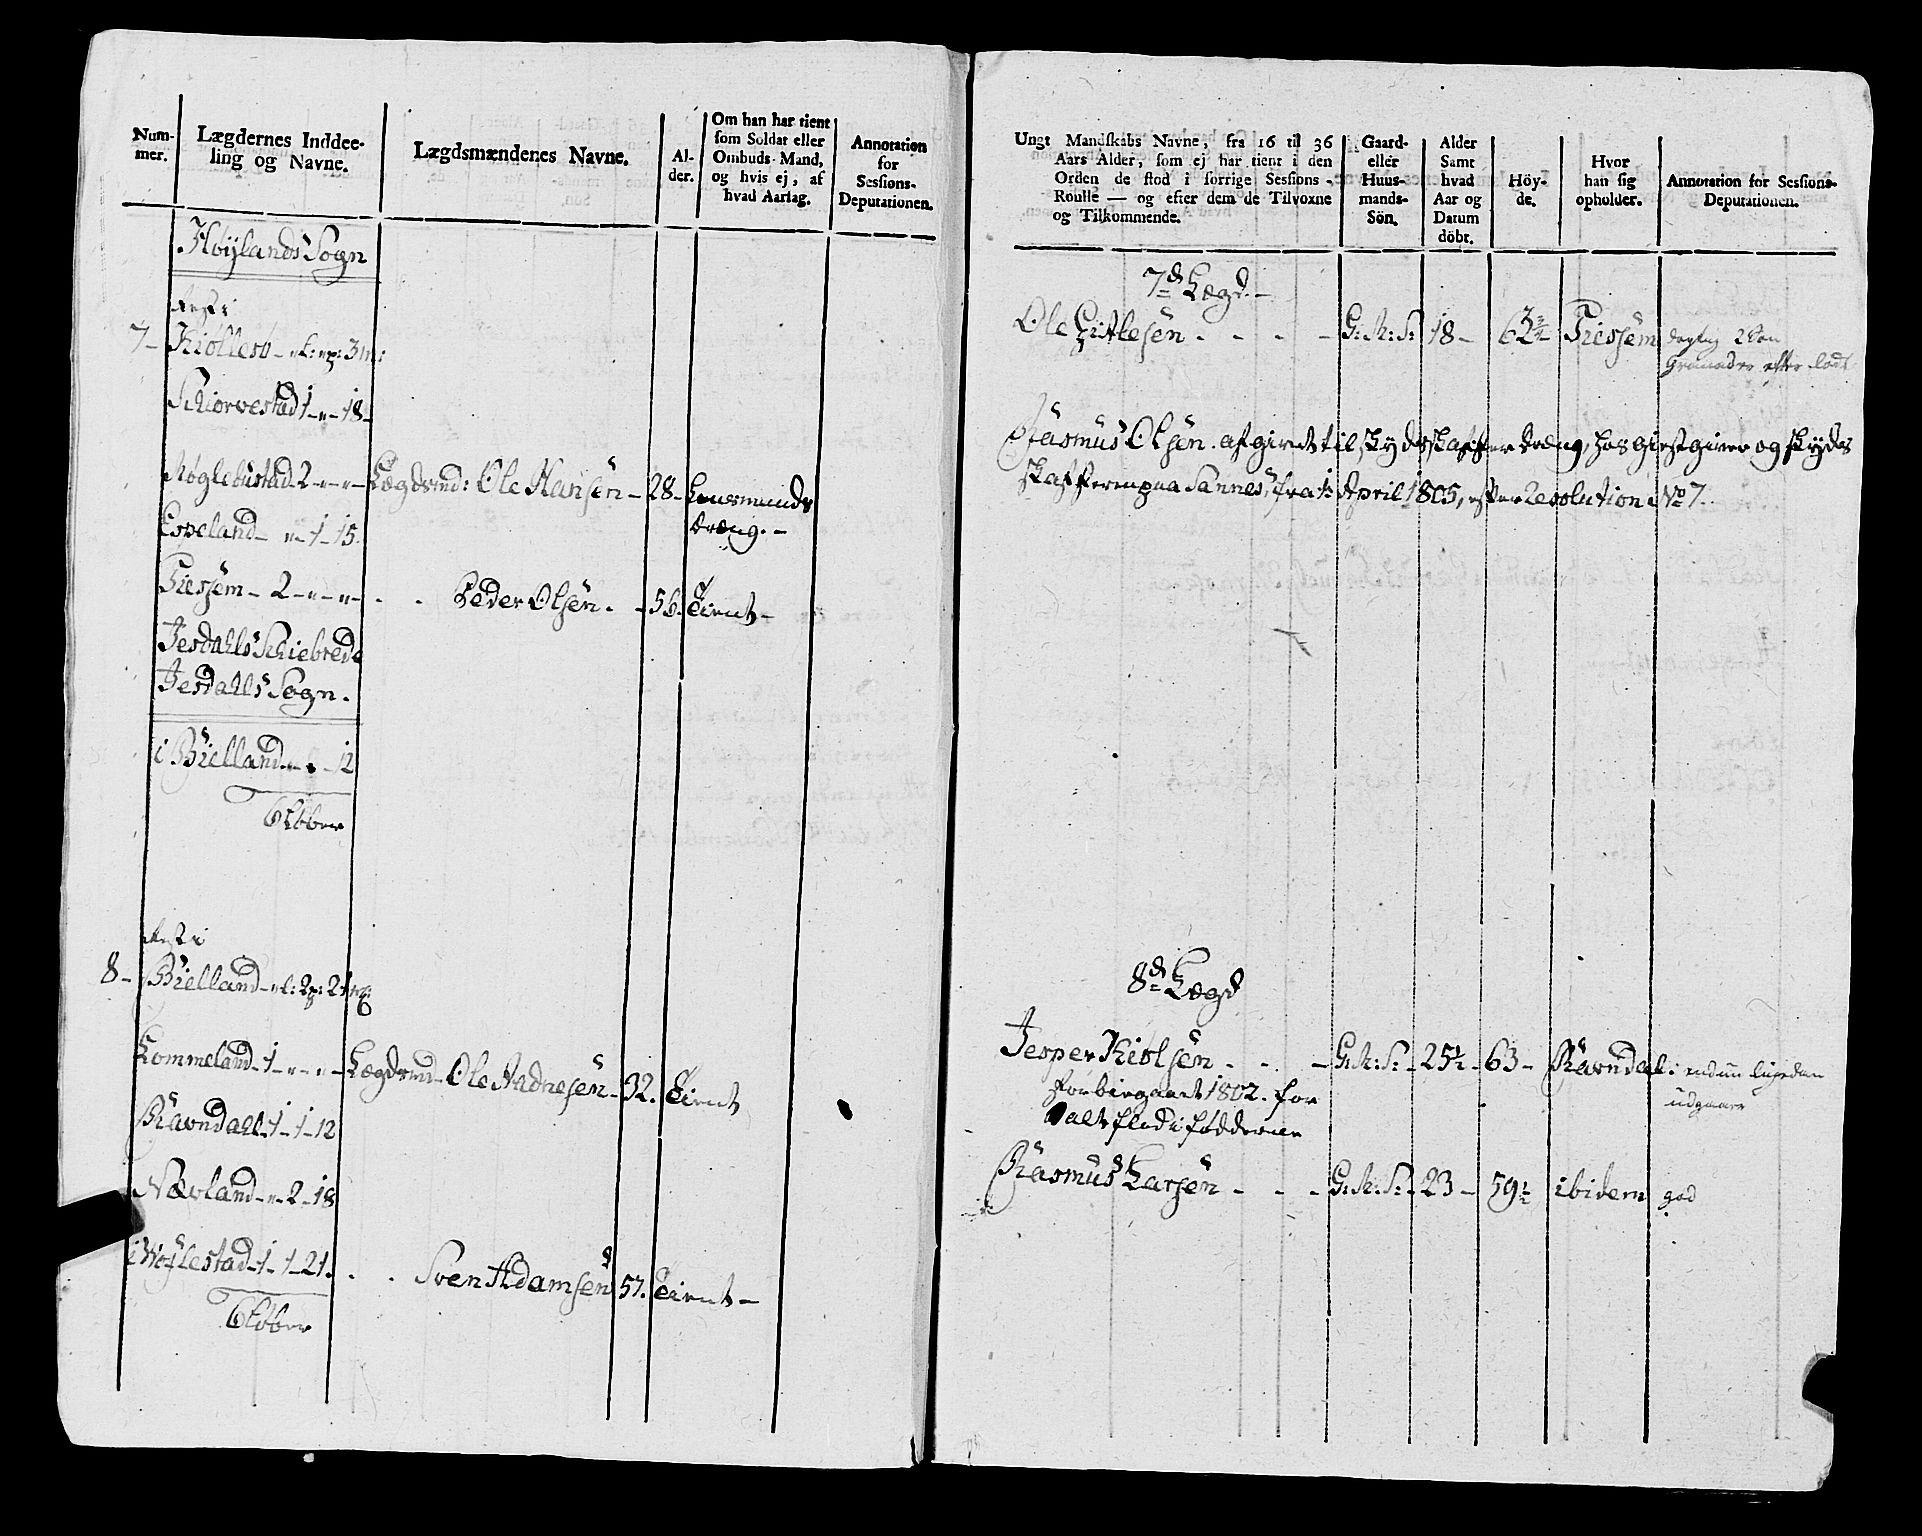 Num-
mer.
Lægdernes Inddee-
ling og Navne.
Lægdsmændenes Navne.
Al-
der.
Om han har tient
som Soldat eller
Ombuds-Mand,
og hvis ej, af
hvad Aarsag.
Annotation
for
Sessions-
Deputationen.
Høylands Sogn
Rest i
7 - Kiøllesv
Schiorvestad 1 - " - 18 -
Røglebustad 2 - " - " - Lægdsmd: Ole Hansen - 28 - Huusmands
dreng. -
Espeland - " - 1 - 15.
Tiessem - 2 - " - " - . . Peder Olsen . - 56. Tient -
Jesdahls Schiebrede
Jesdahls Sogn.
i Bielland - " - 12
6 Løber
Rest i
8 - Bielland
Kommeland - 1 - " - " - Lægdsmd - Ole Aadnesen - 32. Tient
Ravndahl - 1 - 1 - 12
Nævland - " - 2 - 18
i Høylestad - 1 - 1 - 21. . . Sven Adamsen 57. Tient -
6 Løber
Ungt Mandskabs Navne, fra 16 til 36
Aars Alder, som ej har tient i den
Orden de stod i forrige Sessions-
Roulle — og efter dem de Tilvoxne
og Tilkommende.
Gaard-
eller
Huus-
mands-
Sön.
Alder
Samt
hvad
Aar og
Datum
döbt.
Höy-
de.
Hvor
han sig
opholder.
Annotation for Sessions-
Deputationen.
7de Lægd. -
Ole Gitlesen . - - - G: M: S: 18 - 63 3/4 Tiessem dygtig
Granader efter lod
Rasmus Olsen. afgivet til skydsskaffer dreng, hos giestgiver og skyds
skafferen paa Sannes, fra 1 April 1805, efter Resolution No 7.
8de Lægd
Jesper Kiolsen - - - G: M: S: - 25 1/2 - 63 - Ravndal: endnu ligedan
forbigaaet 1802. for udgaaer
Saltflod i føddderne
Rasmus Larsen - - - G: M: S: - 23 - 59 1/2 ibidem god